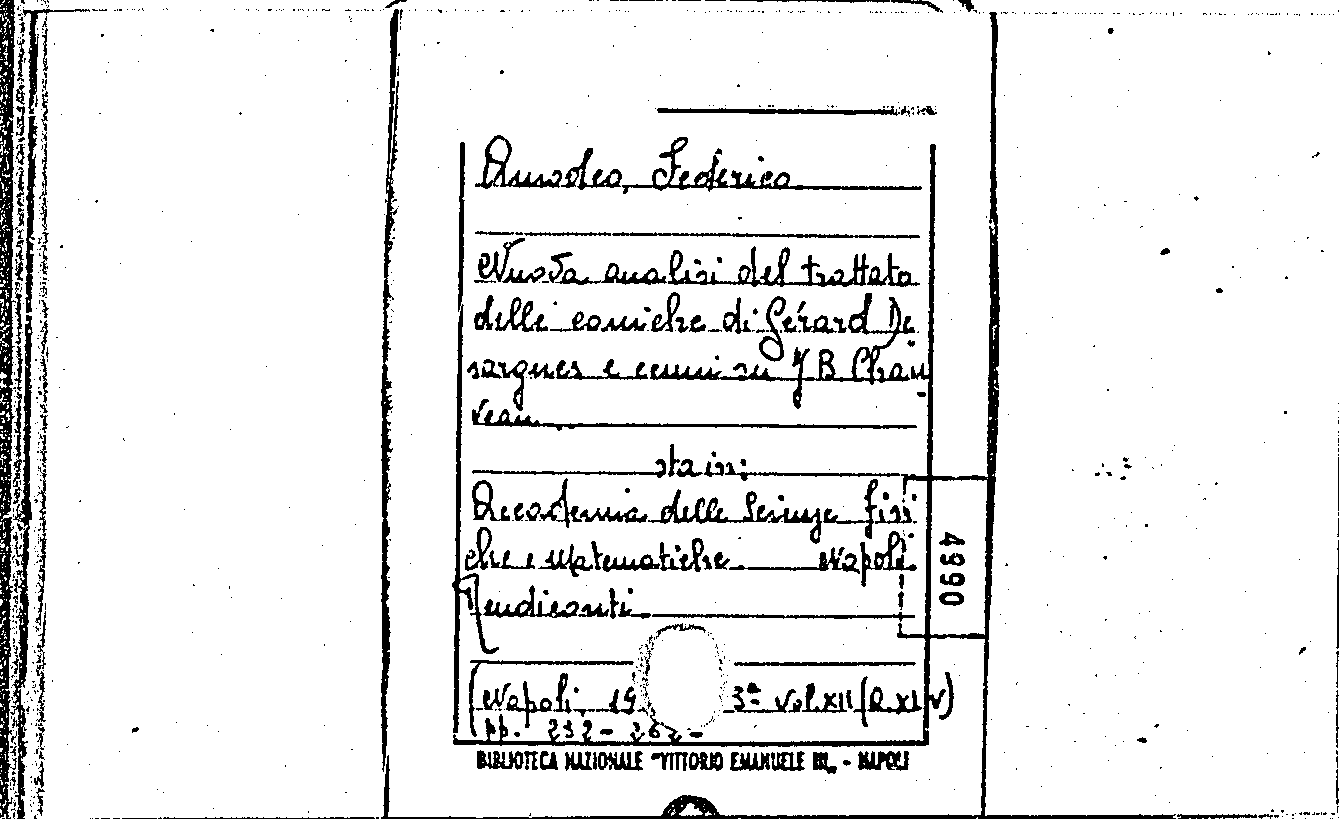 Amodeo, Federico
Nuova analisi del trattato
delle coniche di Gérard De
sargues e cenni su J B Chau
veau
sta in:
Accademia delle Scienze fisi
che e Matematiche. Napoli.
Rendiconti.
(Napoli, 19 3ª vol. XII (A. XLV)
pp. 232 - 262 -
4990
BIBLIOTECA NAZIONALE "VITTORIO EMANUELE III„ - NAPOLI